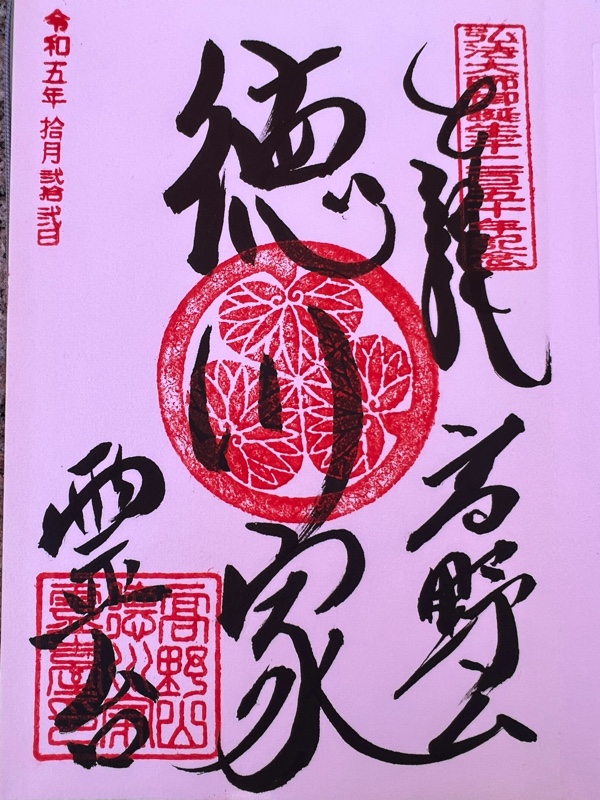 弘法大師御誕生千二百五十年記念
高野山
徳川家
霊台
高野山
徳川家
令和五年 拾月 弐拾弐日